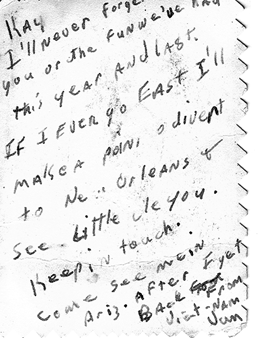 Kay
I'll never forget
you or the fun we've had
this year and last.
IF I Ever go East I'll
make a point o divert
to New Orleans &
see Little ole you.
Keep in touch.
come see me in
Ariz. After I get
Back From
Viet-Nam